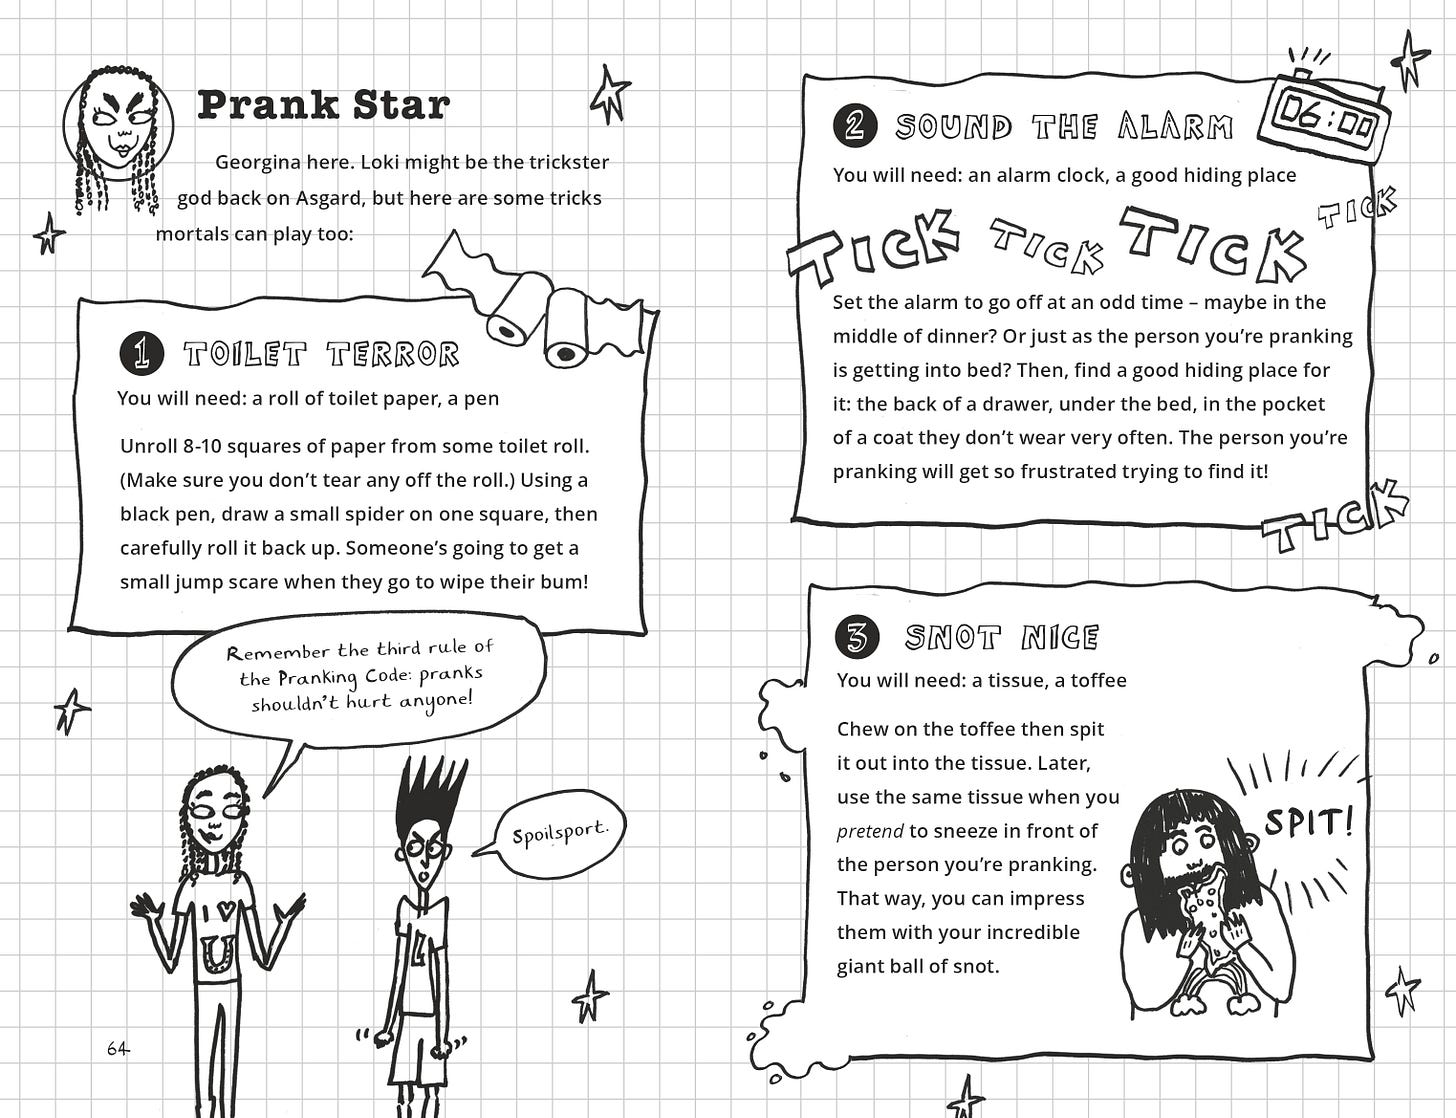 Prank Star
Georgina here. Loki might be the trickster
god back on Asgard, but here are some tricks
mortals can play too:
1 TOILET TERROR
You will need: a roll of toilet paper, a pen
Unroll 8-10 squares of paper from some toilet roll.
(Make sure you don’t tear any off the roll.) Using a
black pen, draw a small spider on one square, then
carefully roll it back up. Someone’s going to get a
small jump scare when they go to wipe their bum!
Remember the third rule of
the Pranking Code: pranks
shouldn’t hurt anyone!
Spoilsport.
I ♡
U
L
64
2 SOUND THE ALARM
06:00
You will need: an alarm clock, a good hiding place
TICK TICK TICK TICK
Set the alarm to go off at an odd time – maybe in the
middle of dinner? Or just as the person you’re pranking
is getting into bed? Then, find a good hiding place for
it: the back of a drawer, under the bed, in the pocket
of a coat they don’t wear very often. The person you’re
pranking will get so frustrated trying to find it!
TICK
3 SNOT NICE
You will need: a tissue, a toffee
Chew on the toffee then spit
it out into the tissue. Later,
use the same tissue when you
pretend to sneeze in front of
the person you’re pranking.
That way, you can impress
them with your incredible
giant ball of snot.
SPIT!